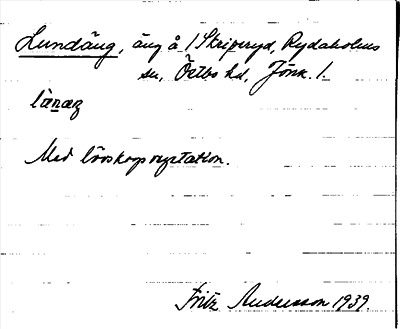 Lundäng, äng å 1 Skriperyd, Rydaholms
sn, Östbo hd, Jönk. l.
lùnæŋ
Med lövskogsvegetation.
Fritz Andersson 1939.